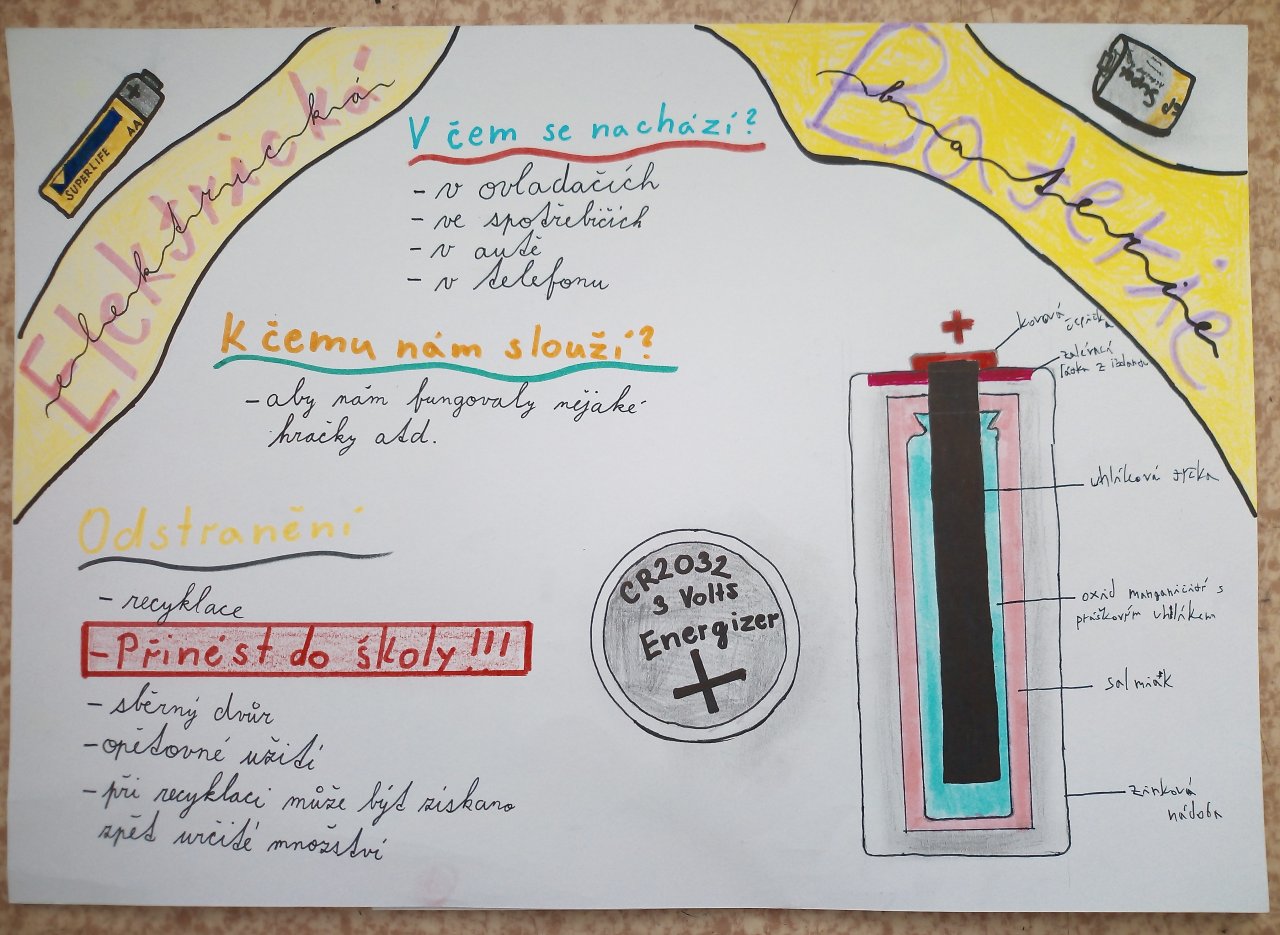 Elektrická
elektrická
Baterie
baterie
SUPERLIFE
AA
V čem se nachází?
- v ovladačích
- ve spotřebičích
- v autě
- v telefonu
K čemu nám slouží?
- aby nám fungovaly nějaké
hračky atd.
Odstranění
- recyklace
- Přinést do školy!!!
- sběrný dvůr
- opětovné užití
- při recyklaci může být získano
zpět určité množství
CR2032
3 Volts
Energizer
+
+
kovová čepička
zalévací
uhlíková tyčka
oxid manganičití s
práškovým uhlíkem
salmiak
zinková
nádoba